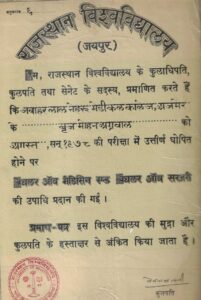 अनुक्रमांक ६
राजस्थान विश्वविद्यालय
(जयपुर)
हम, राजस्थान विश्वविद्यालय के कुलाधिपति,
कुलपति तथा सेनेट के सदस्य, प्रमाणित करते हैं
कि जवाहर लाल नेहरू मेडीकल कालेज, अजमेर
के बृज मोहन अग्रवाल
को अगस्त, सन् १९७८ की परीक्षा में उत्तीर्ण घोषित
होने पर
बैचलर ऑव मेडिसिन एण्ड बैचलर ऑव सरजरी
की उपाधि प्रदान की गई।
प्रमाण-पत्र इस विश्वविद्यालय की मुद्रा और
कुलपति के हस्ताक्षर से अंकित किया जाता है।
कुलपति